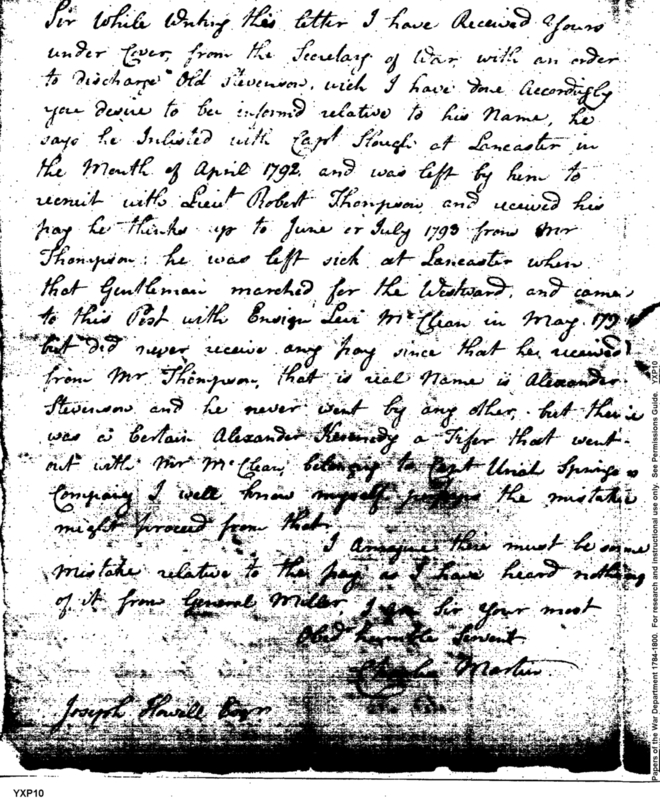 Sir While Writing this letter I have Received Yours
under Cover, from the Secretary of War, with an order
to discharge Old Stevenson, wich I have done Accordingly
you desire to be informd relative to his Name, he
says he Inlisted with Capt Slough at Lancaster in
the Month of April 1792, and was left by him to
recruit with Lieut Robert Thompson and received his
pay he thinks up to June or July 1793 from Mr
Thompson: he was left sick at Lancaster when
that Gentleman marched for the Westward, and came
to this Post with Ensign Levi McClean in May
but did never receive any pay since that he received
from Mr Thompson, that is real Name is Alexander
Stevenson and he never went by any other, but there
was a Certain Alexander Kennedy a Fifer that went
out with Mr McClean, belonging to Capt Uriah Springs
Company I well know myself perhaps the mistake
might proceed from that.
I there must be some
Mistake relative to the pay as I have heard nothing
of it from General Miller I am Sir Your most
Obed humble Servent
Charles Martin
Joseph Howell Esqr
Papers of the War Department 1784-1800. For research and instructional use only. See Permissions Guide. YXP10
YXP10